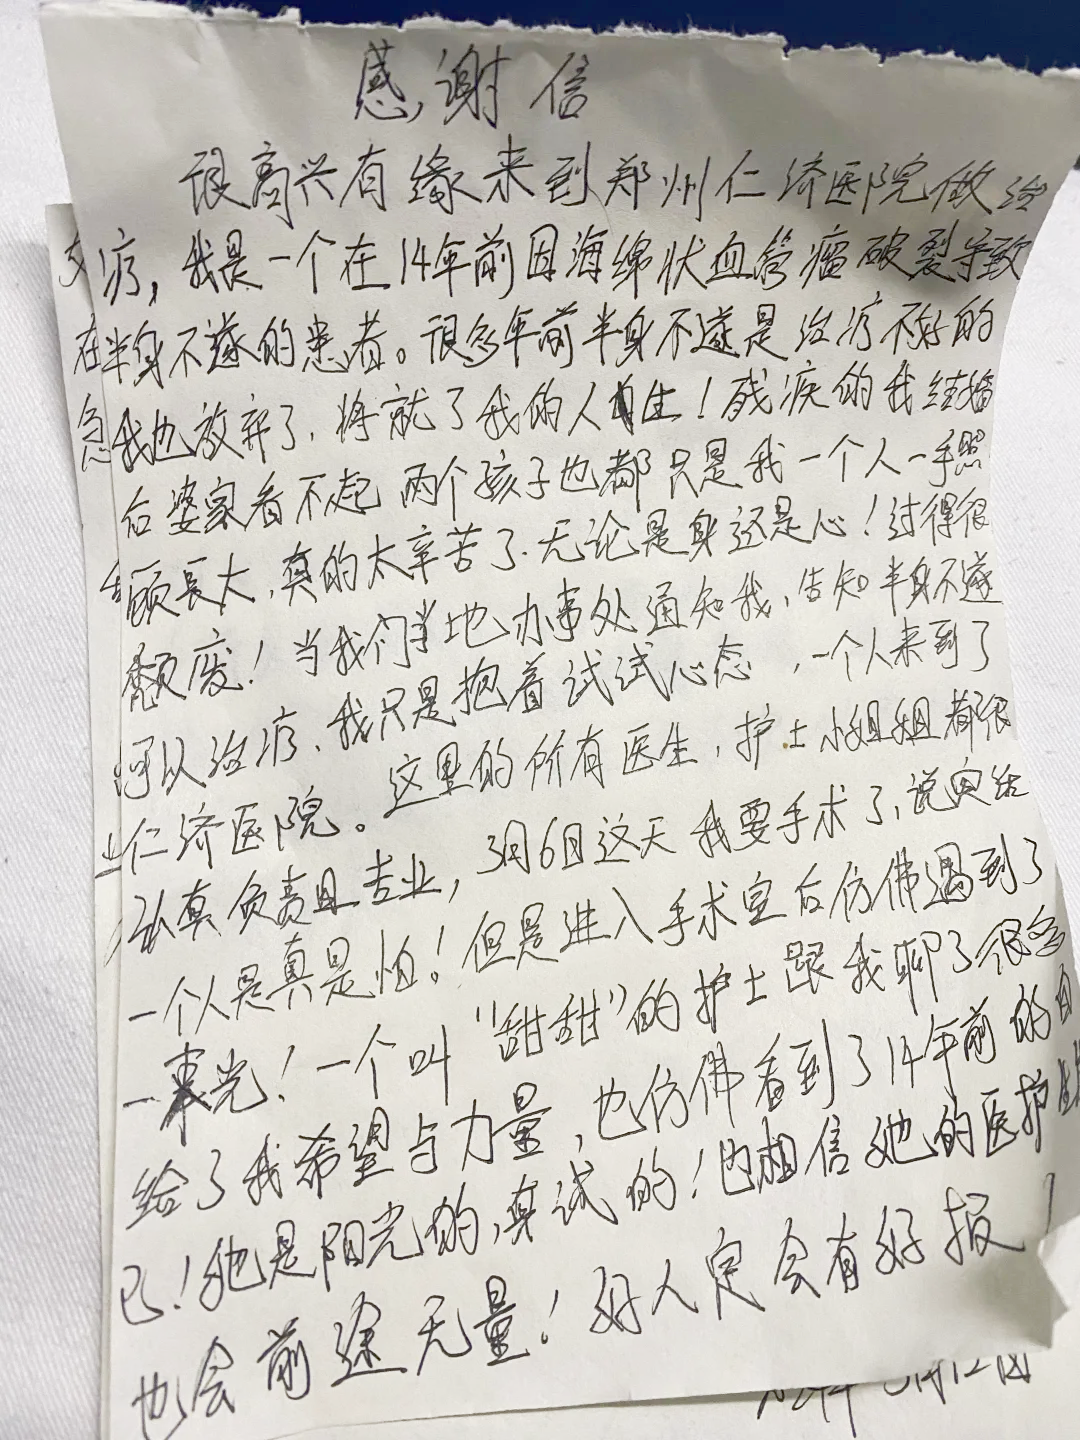 感谢信
很高兴有缘来到郑州仁济医院做治
疗，我是一个在14年前因海绵状血管瘤破裂导致
半身不遂的患者。很多年前半身不遂是治疗不好的
我也放弃了、将就了我的人生！残疾的我经婚
后婆家看不起 两个孩子也都只是我一个人一手照
顾長大，真的太辛苦了、无论是身还是心！过得很
颓废！当我们当地办事处通知我、告知半身不遂
可以治疗、我只是抱着试试心态，一个人来到了
仁济医院。这里的所有医生，护士小姐姐都很
认真负责且专业，3月6日这天我要手术了，说实话
一个人是真是怕！但是进入手术室后仿佛遇到了
一束光！一个叫“甜甜”的护士跟我聊了很多
给了我希望与力量，也仿佛看到了14年前的自
已！她是阳光的，真试的！也相信她的医护生
也会前途无量！好人定会有好报！
月12日